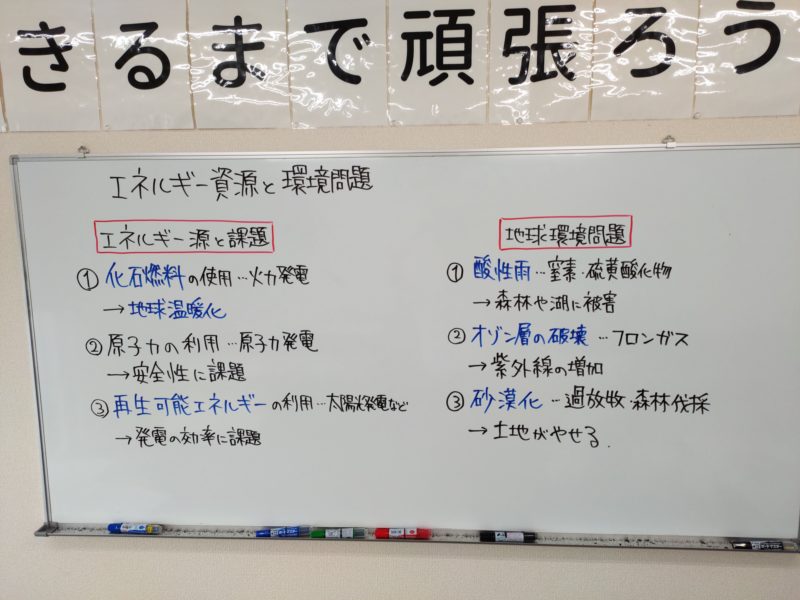 きるまで頑張ろう
エネルギー資源と環境問題
エネルギー源と課題
① 化石燃料の使用…火力発電
→地球温暖化
② 原子力の利用…原子力発電
→安全性に課題
③ 再生可能エネルギーの利用…太陽光発電など
→発電の効率に課題
地球環境問題
① 酸性雨…窒素・硫黄酸化物
→森林や湖に被害
② オゾン層の破壊…フロンガス
→紫外線の増加
③ 砂漠化…過放牧・森林伐採
→土地がやせる.